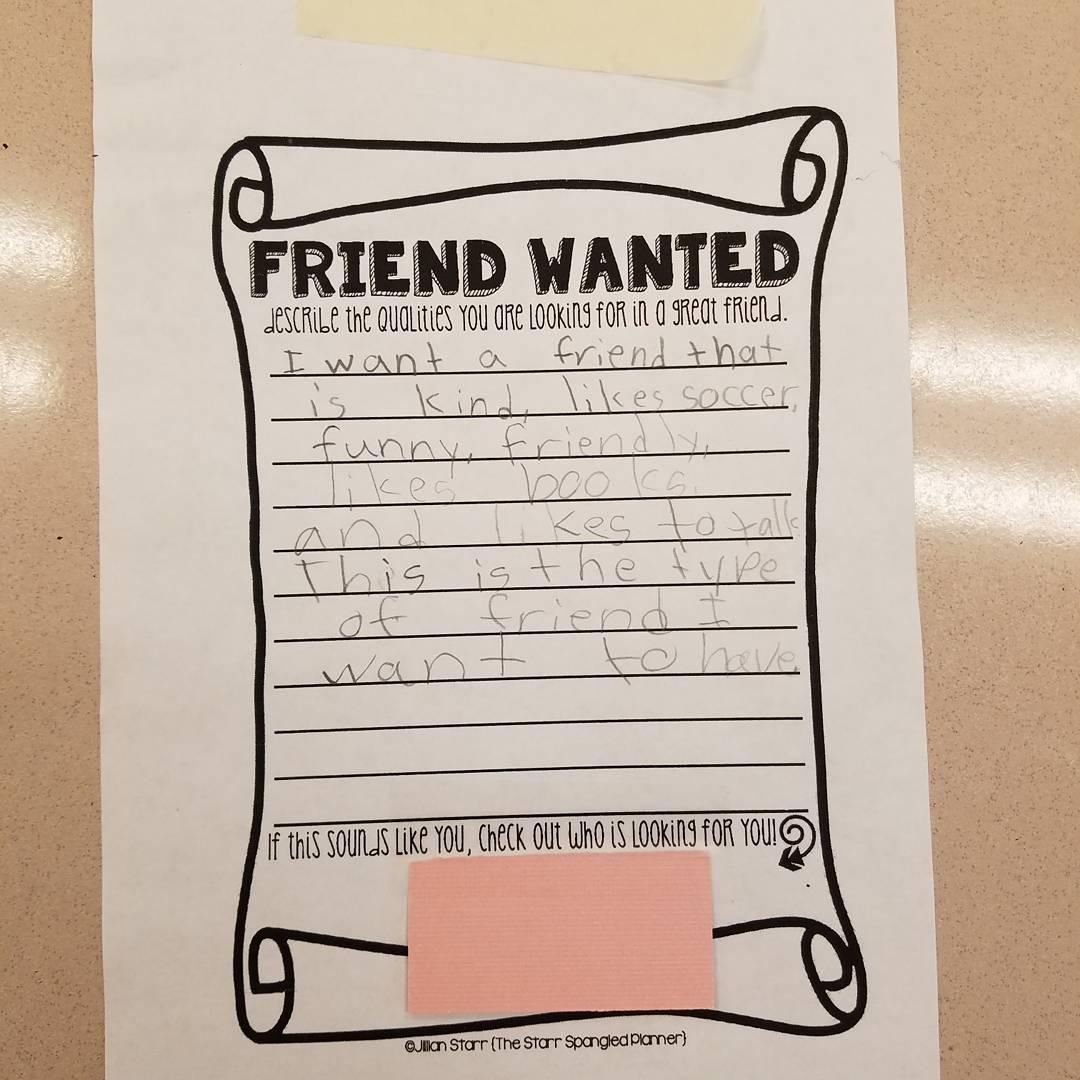 FRIEND WANTED
describe the qualities you are looking for in a great friend.
I want a friend that
is kind, likes soccer,
funny, friendly,
likes books,
and likes to talk
This is the type
of friend I
want to have.
If this sounds like you, check out who is looking for you!
©Jillian Starr {The Starr Spangled Planner}